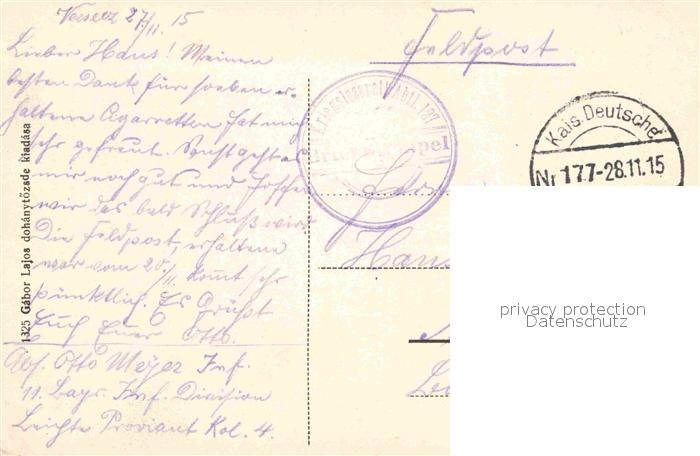 Versecz 27/11. 15
Lieber Hans! Meinen
besten Dank für soeben er-
haltene Cigarretten hat mich
sehr gefreut. Sonst geht es
mir noch gut und hoffen
wir das bald Schluß wird
Die Feldpost, erhaltene
war vom 20./11. kommt sehr
pünktlich. Es Grüßt
Euch Euer Otto.
Abs. Otto Meyer Inf.
11. Bayr. Inf. Division
Leichte Proviant Kol. 4.
1325 Gábor Lajos dohánytőzsde kiadása
Feldpost
Briefstempel
Kais. Deutsche
Nr 177-28.11.15
Hans
privacy protection
Datenschutz